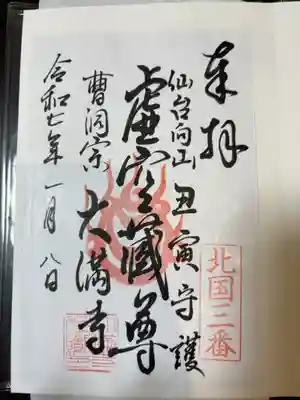 奉拝
北国三番
仙台向山 丑寅守護
虚空蔵尊
曹洞宗 大満寺
令和七年一月八日